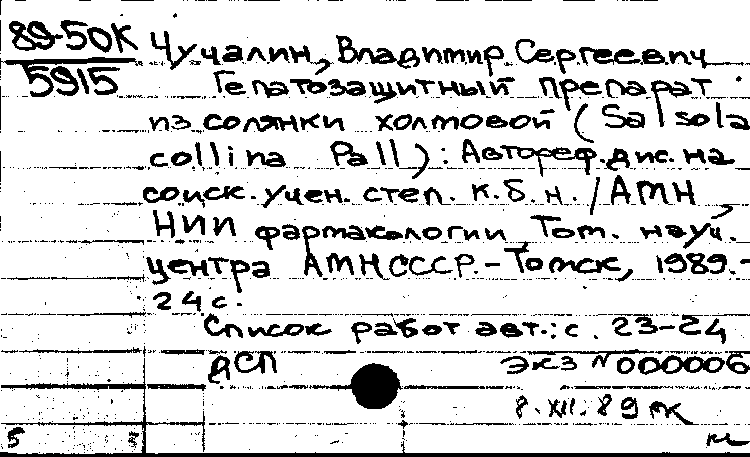 89-50К Чучалин, Владимир Сергеевич
5915 Гепатозащитный препарат
из солянки холмовой (Salsola
collina Pall): Автореф. дис. на
соиск. учен. степ. к. б. н. / АМН,
НИИ фармакологии Том. науч.
центра АМНСССР. - Томск, 1989. -
24 с.
Список работ авт.: с. 23-24
ДСП экз N 000006
8. XII. 89
5 3